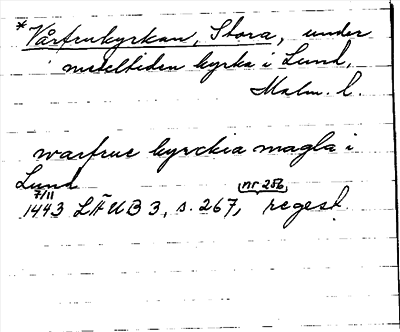 * Vårfrukyrkan, Stora, under
medeltiden kyrka i Lund,
Malm. l.
warfrue kyrckia magla i
Lund
7/11 nr 256
1443 LÄUB 3, s. 267, regest.